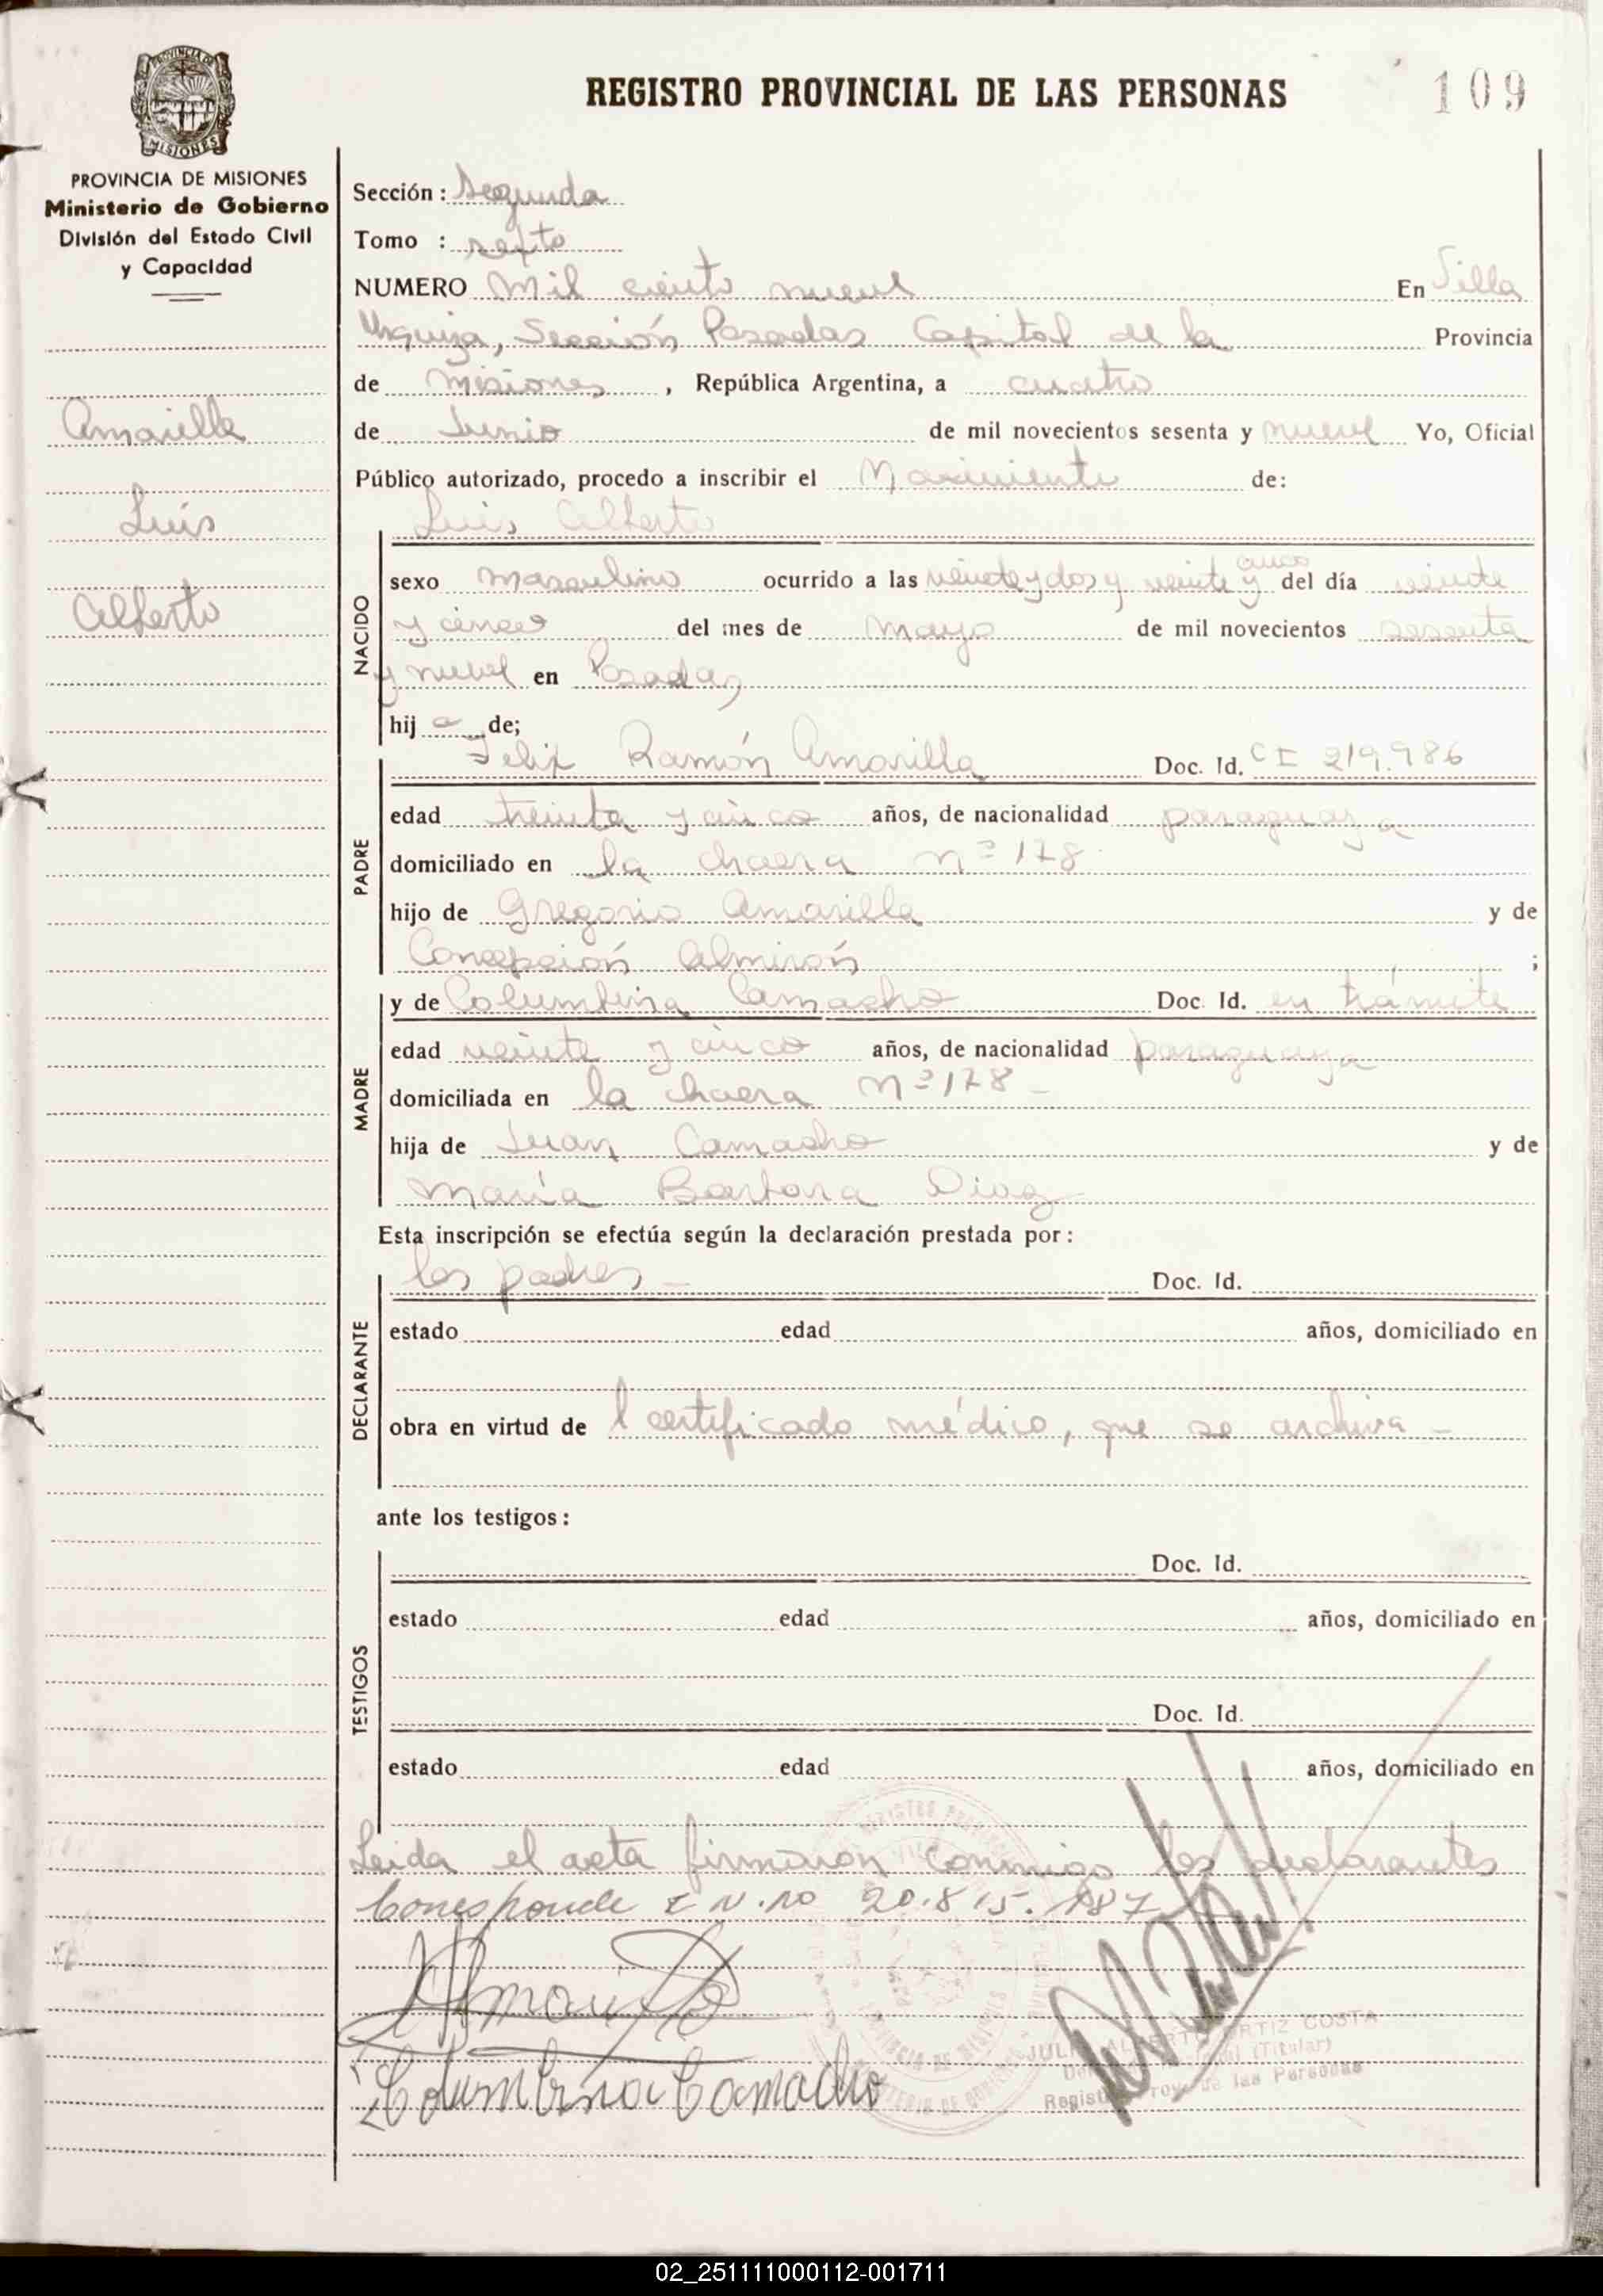 PROVINCIA DE MISIONES
Ministerio de Gobierno
División del Estado Civil
y Capacidad
Amarilla
Luis
Alberto
REGISTRO PROVINCIAL DE LAS PERSONAS 109
Sección : Segunda
Tomo : sexto
NUMERO Mil ciento nueve En Villa
Urquiza, Sección Posadas Capital de la Provincia
de Misiones , República Argentina, a cuatro
de Junio de mil novecientos sesenta y nueve Yo, Oficial
Público autorizado, procedo a inscribir el Nacimiento de:
NACIDO
Luis Alberto
cinco
sexo masculino ocurrido a las veinte y dos y veinte y del día veinte
y cinco del mes de Mayo de mil novecientos sesenta
y nueve en Posadas
hij o de;
PADRE
Felix Ramón Amarilla Doc. Id. CI 219.986
edad treinta y cinco años, de nacionalidad paraguaya
domiciliado en la chacra nº 178
hijo de Gregorio Amarilla y de
Concepción Almirón ;
MADRE
y de Columbina Camacho Doc. Id. en trámite
edad veinte y cinco años, de nacionalidad paraguaya
domiciliada en la chacra nº 178 -
hija de Juan Camacho y de
María Barbora Diaz
Esta inscripción se efectúa según la declaración prestada por :
DECLARANTE
los padres - Doc. Id.
estado edad años, domiciliado en
obra en virtud de l certificado médico, que se archiva -
ante los testigos :
TESTIGOS
Doc. Id.
estado edad años, domiciliado en
Doc. Id.
estado edad años, domiciliado en
Leida el acta firmaron conmigo los declarantes
Corresponde E N. no 20.815.187
Amarilla
Columbina Camacho
ALBERTO ORTIZ COSTA
(Titular)
de las Personas
02_251111000112-001711